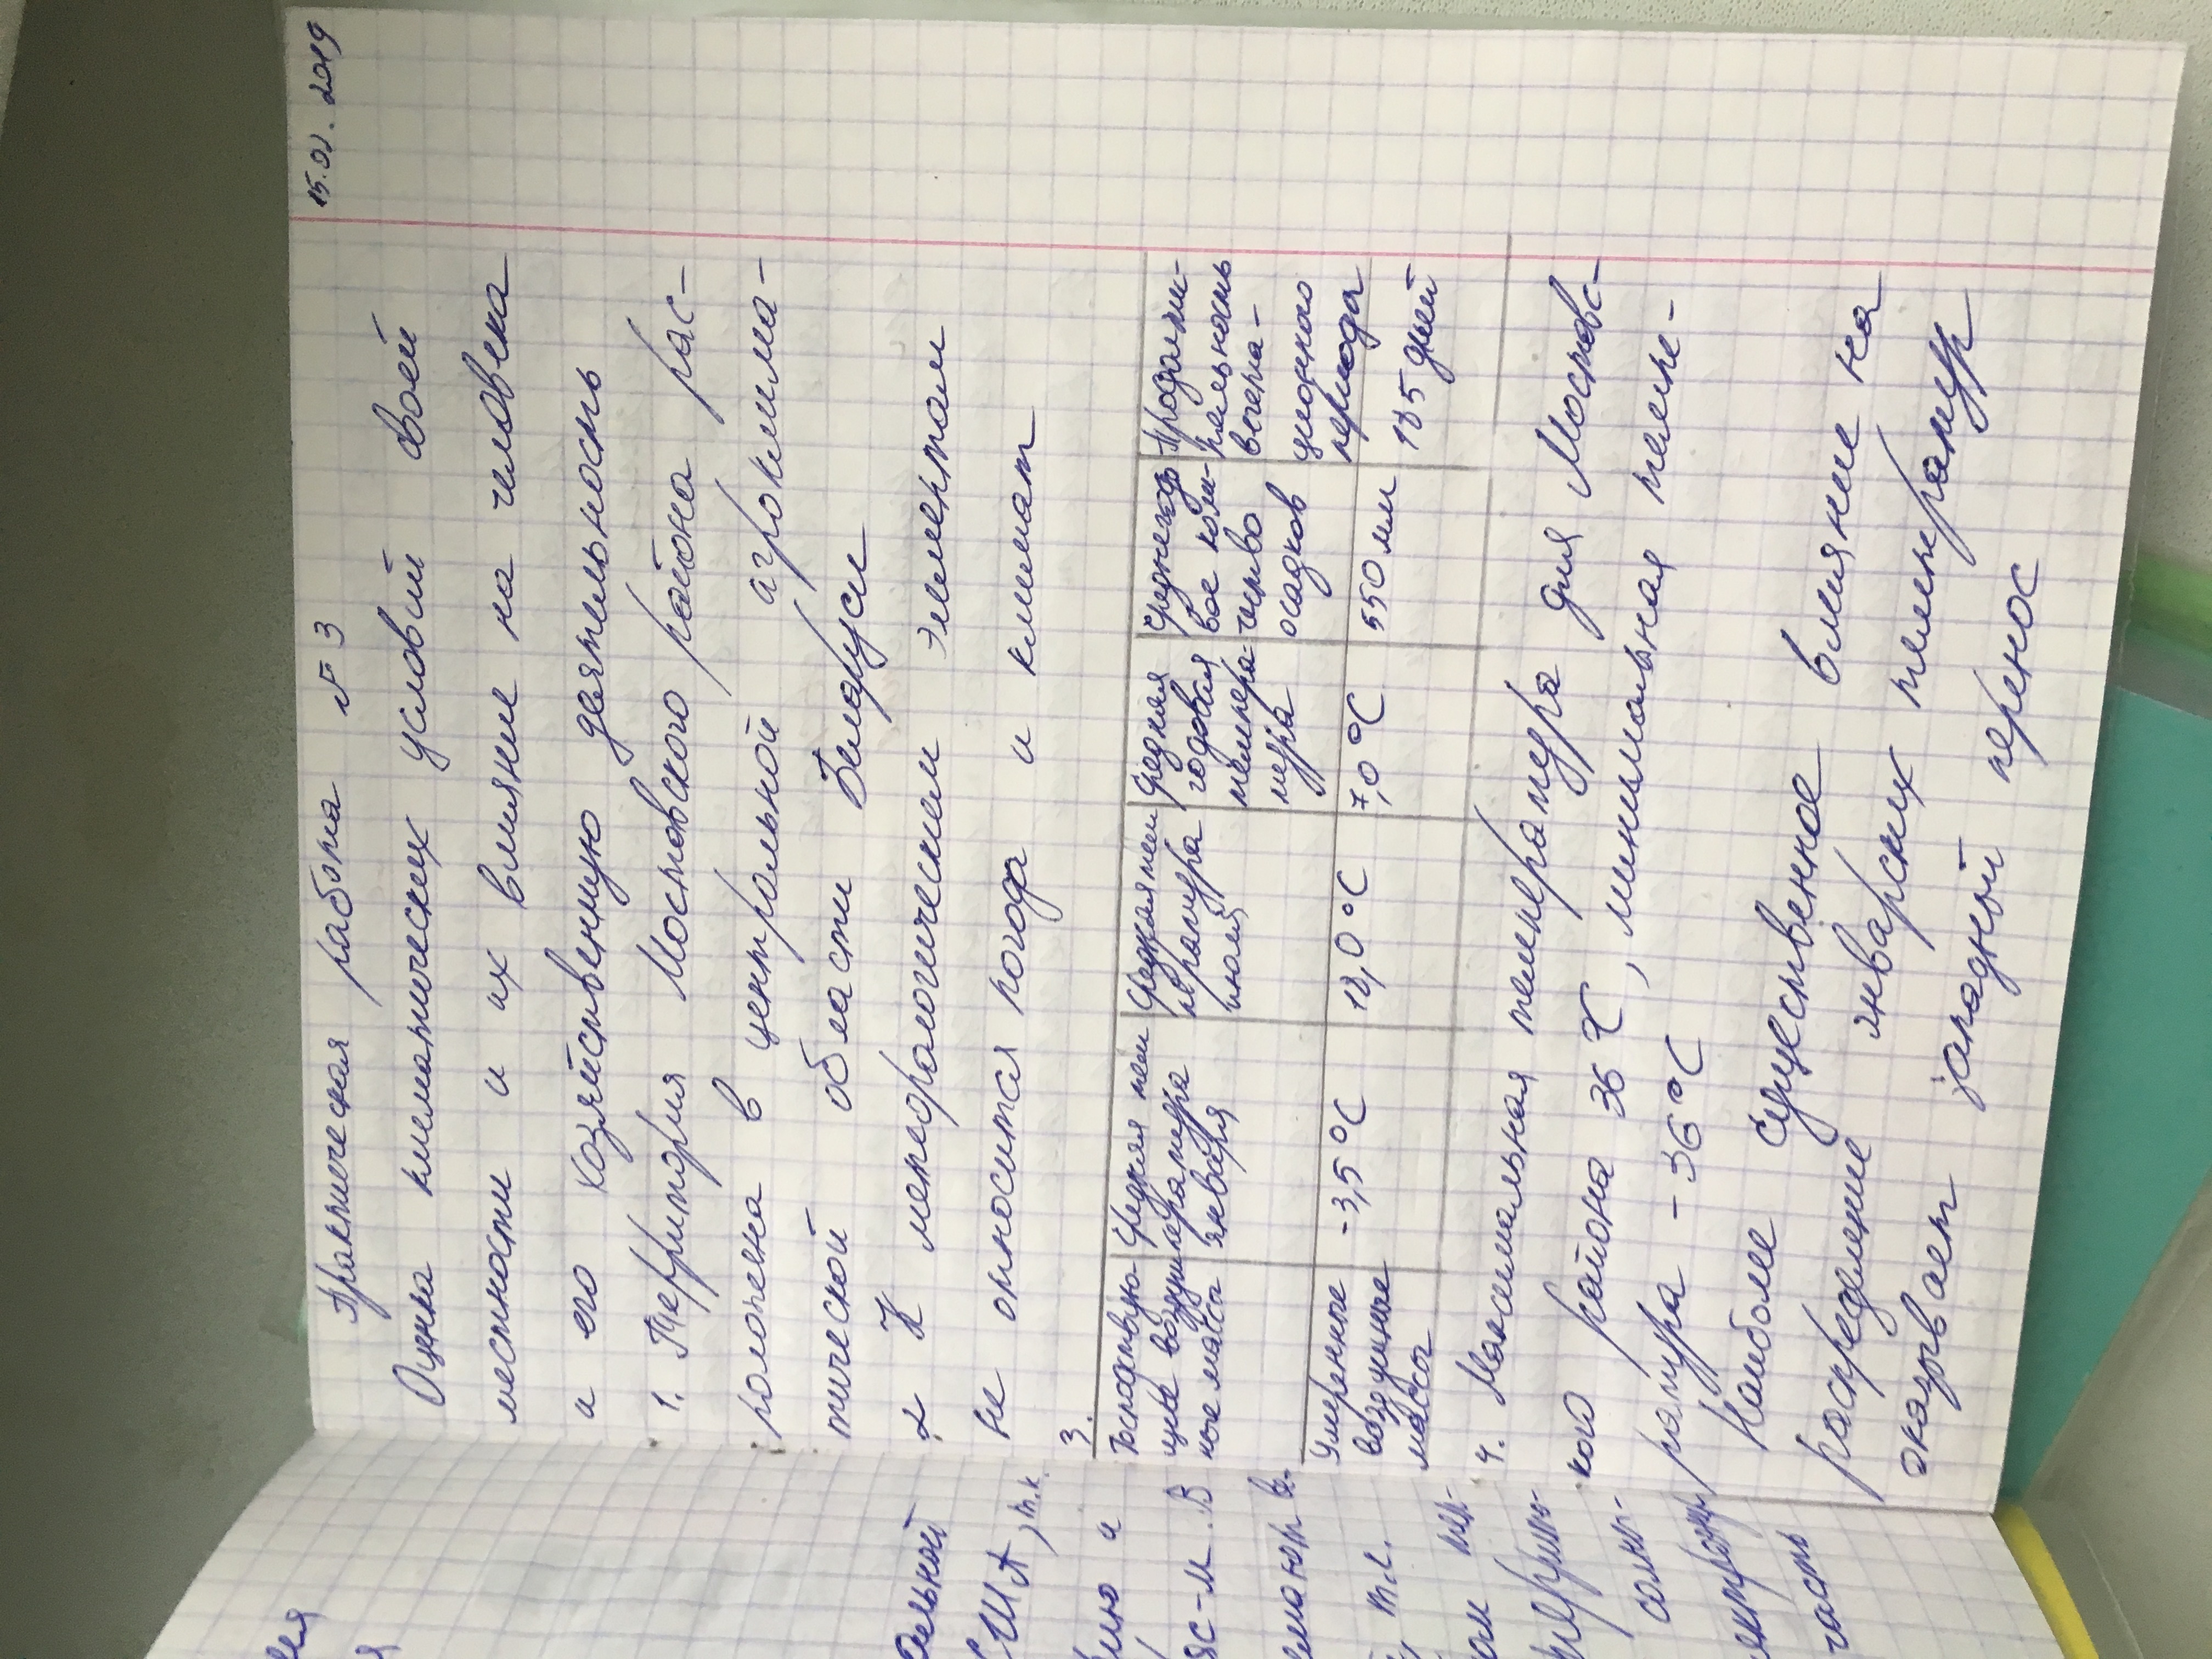 15.02.2019
Практическая работа №3
Оценка климатических условий своей
местности и их влияние на человека
и его хозяйственную деятельность
1. Территория Мостовского района рас-
положена в центральной агроклима-
тической области Беларуси
2 К метеорологическим элементам
не относится погода и климат
3.
Господствую-
щие воздуш
ные массы
Средняя тем
пература
января
Средняя тем
пература
июля
Средняя
годовая
темпера-
тура
Среднегодо
вое коли-
чество
осадков
Продолжи-
тельность
вегета-
ционного
периода
Умеренные
воздушные
массы
-3,5°C
18,0°C
7,0°C
550 мм
185 дней
4. Максимальная температура для Мостовс-
кого района 36°C, минимальная темпе-
ратура -36°C
Наиболее существенное влияние на
распределение январских температур
оказывает западный перенос
ельной
США, т.к.
т.е.
часть